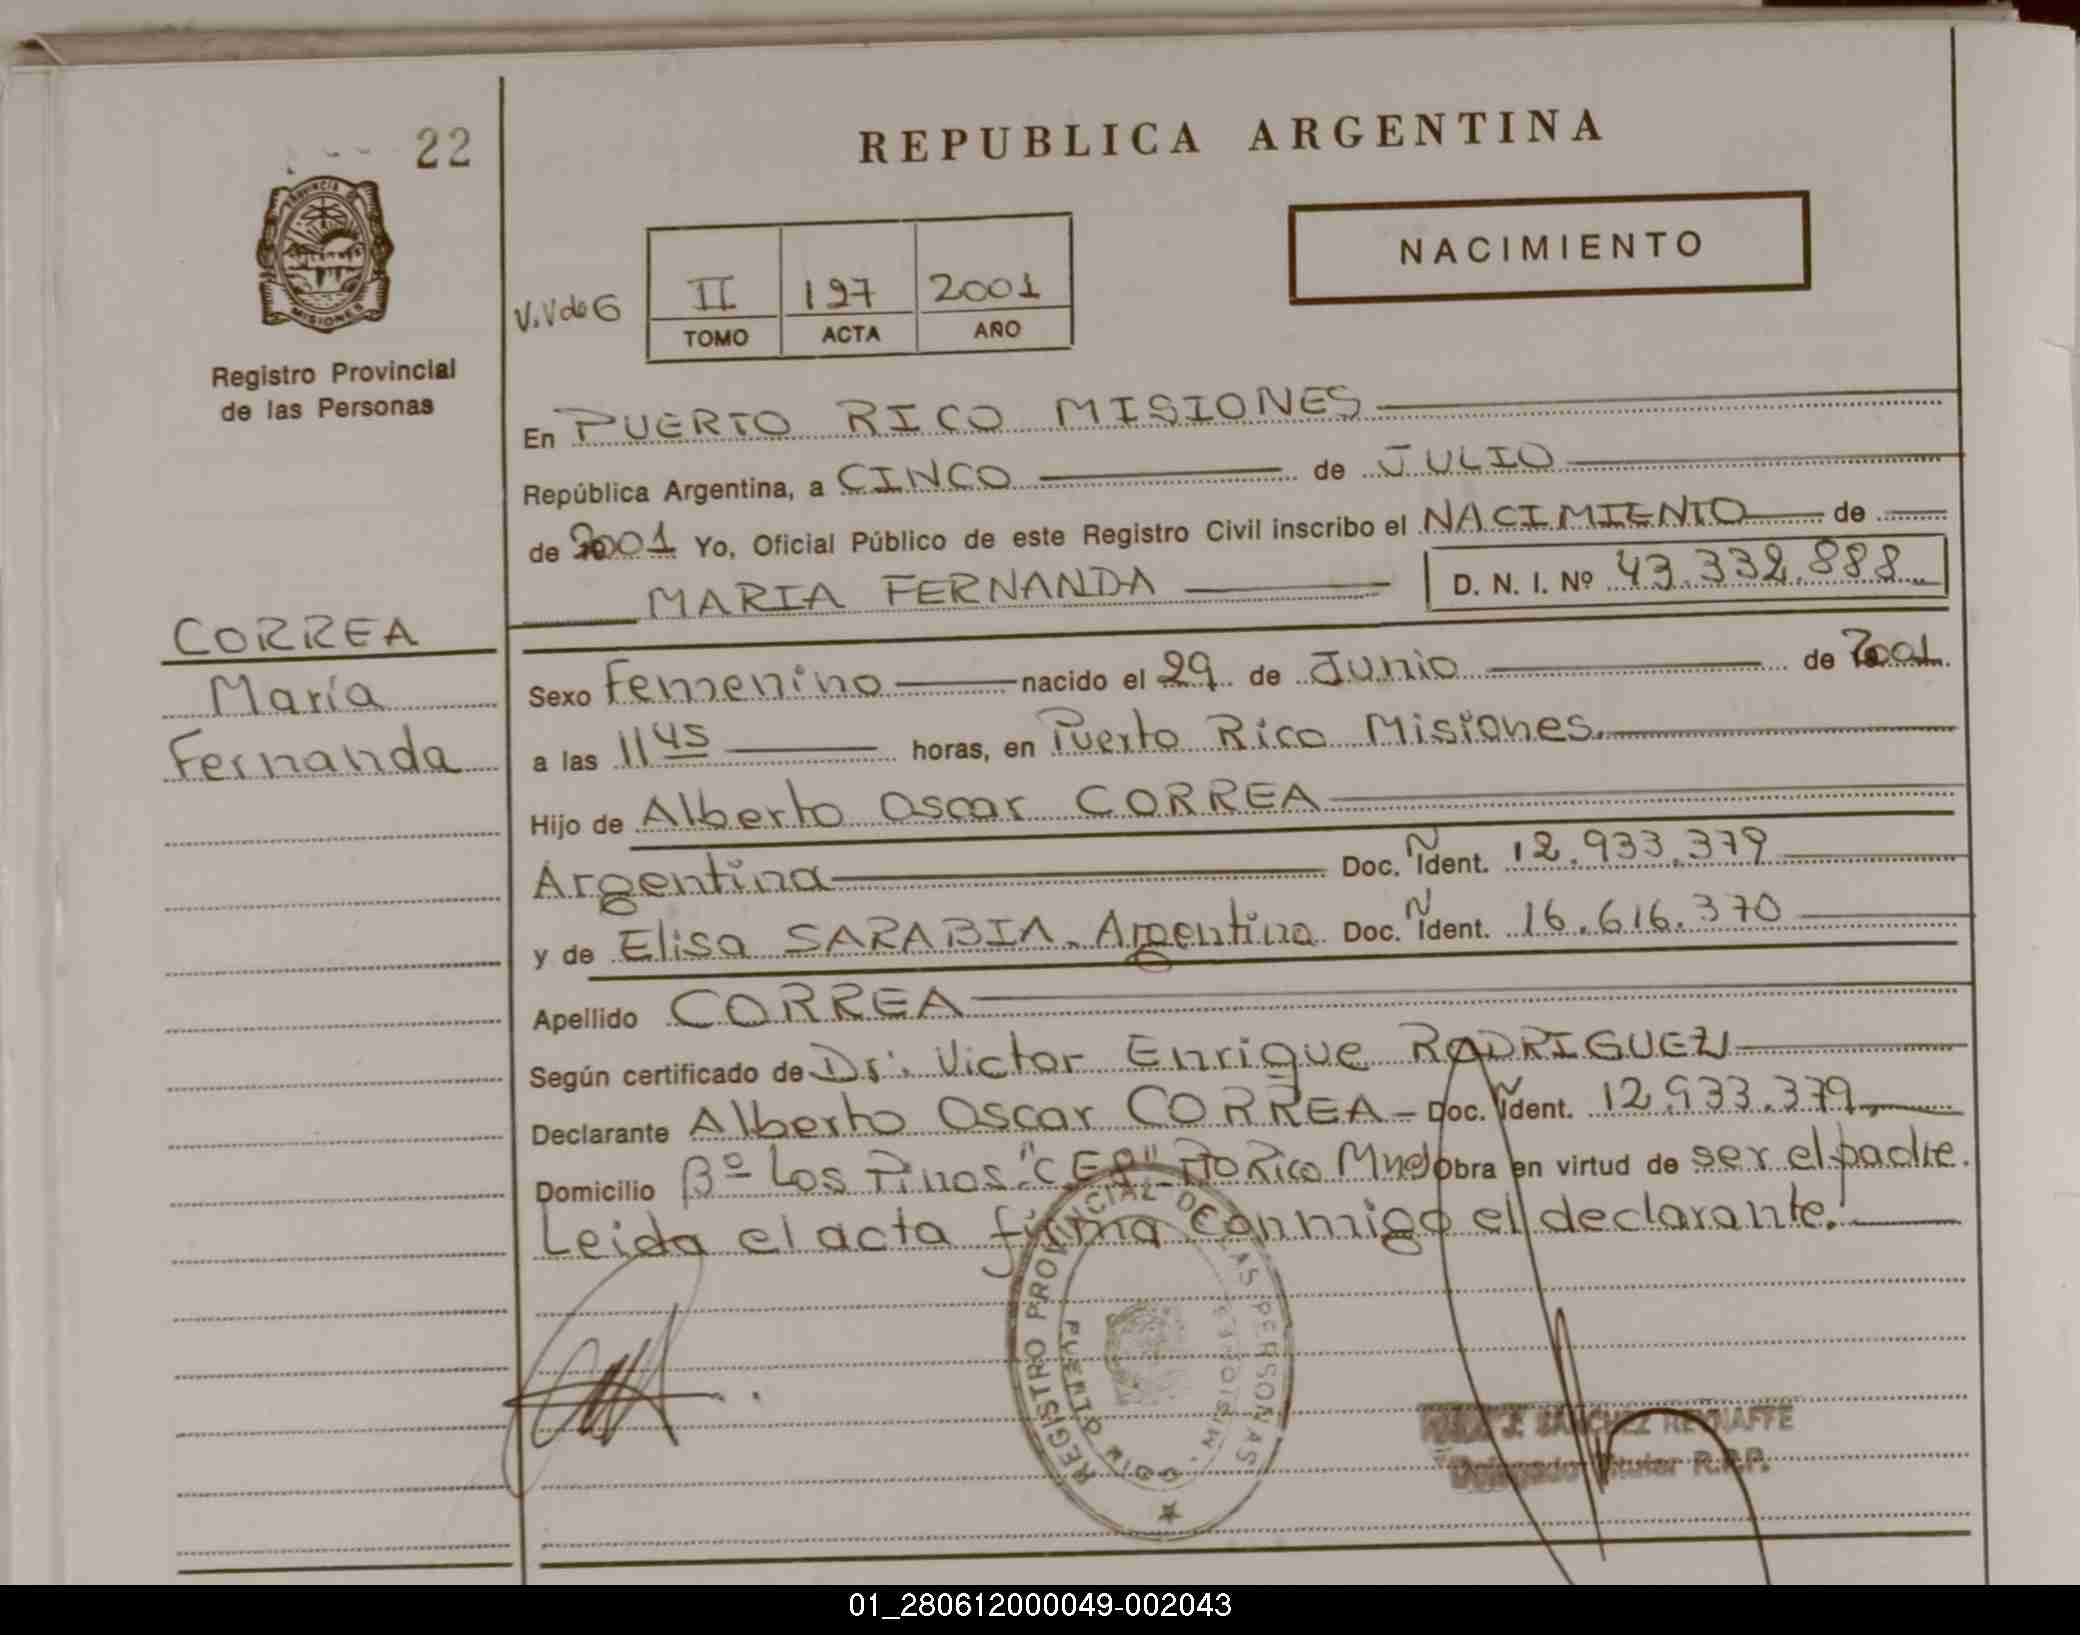 22
REPUBLICA ARGENTINA
PROVINCIA DE
MISIONES
Registro Provincial
de las Personas
NACIMIENTO
V.V de G
II 197 2001
TOMO ACTA AÑO
En PUERTO RICO MISIONES
República Argentina, a CINCO de JULIO
de 2001 Yo, Oficial Público de este Registro Civil inscribo el NACIMIENTO de
MARIA FERNANDA D. N. I. Nº 43.332.888
CORREA
María
Fernanda
Sexo Femenino nacido el 29 de Junio de 2001
a las 11 45 horas, en Puerto Rico Misiones.
Hijo de Alberto Oscar CORREA
Argentina Doc. Ñ Ident. 12.933.379
y de Elisa SARABIA. Argentina Doc. Ñ Ident. 16.616.370
Apellido CORREA
Según certificado de Dr. Victor Enrique RODRIGUEZ
Declarante Alberto Oscar CORREA - Doc. Ñ Ident. 12.933.379
Domicilio Bº Los Pinos "CEP" Pto Rico Mnes obra en virtud de ser el padre.
Leida el acta firma conmigo el declarante.
REGISTRO PROVINCIAL DE LAS PERSONAS
PUERTO RICO . MISIONES
J. SANCHEZ
Delegado Titular R.P.P.
01_280612000049-002043